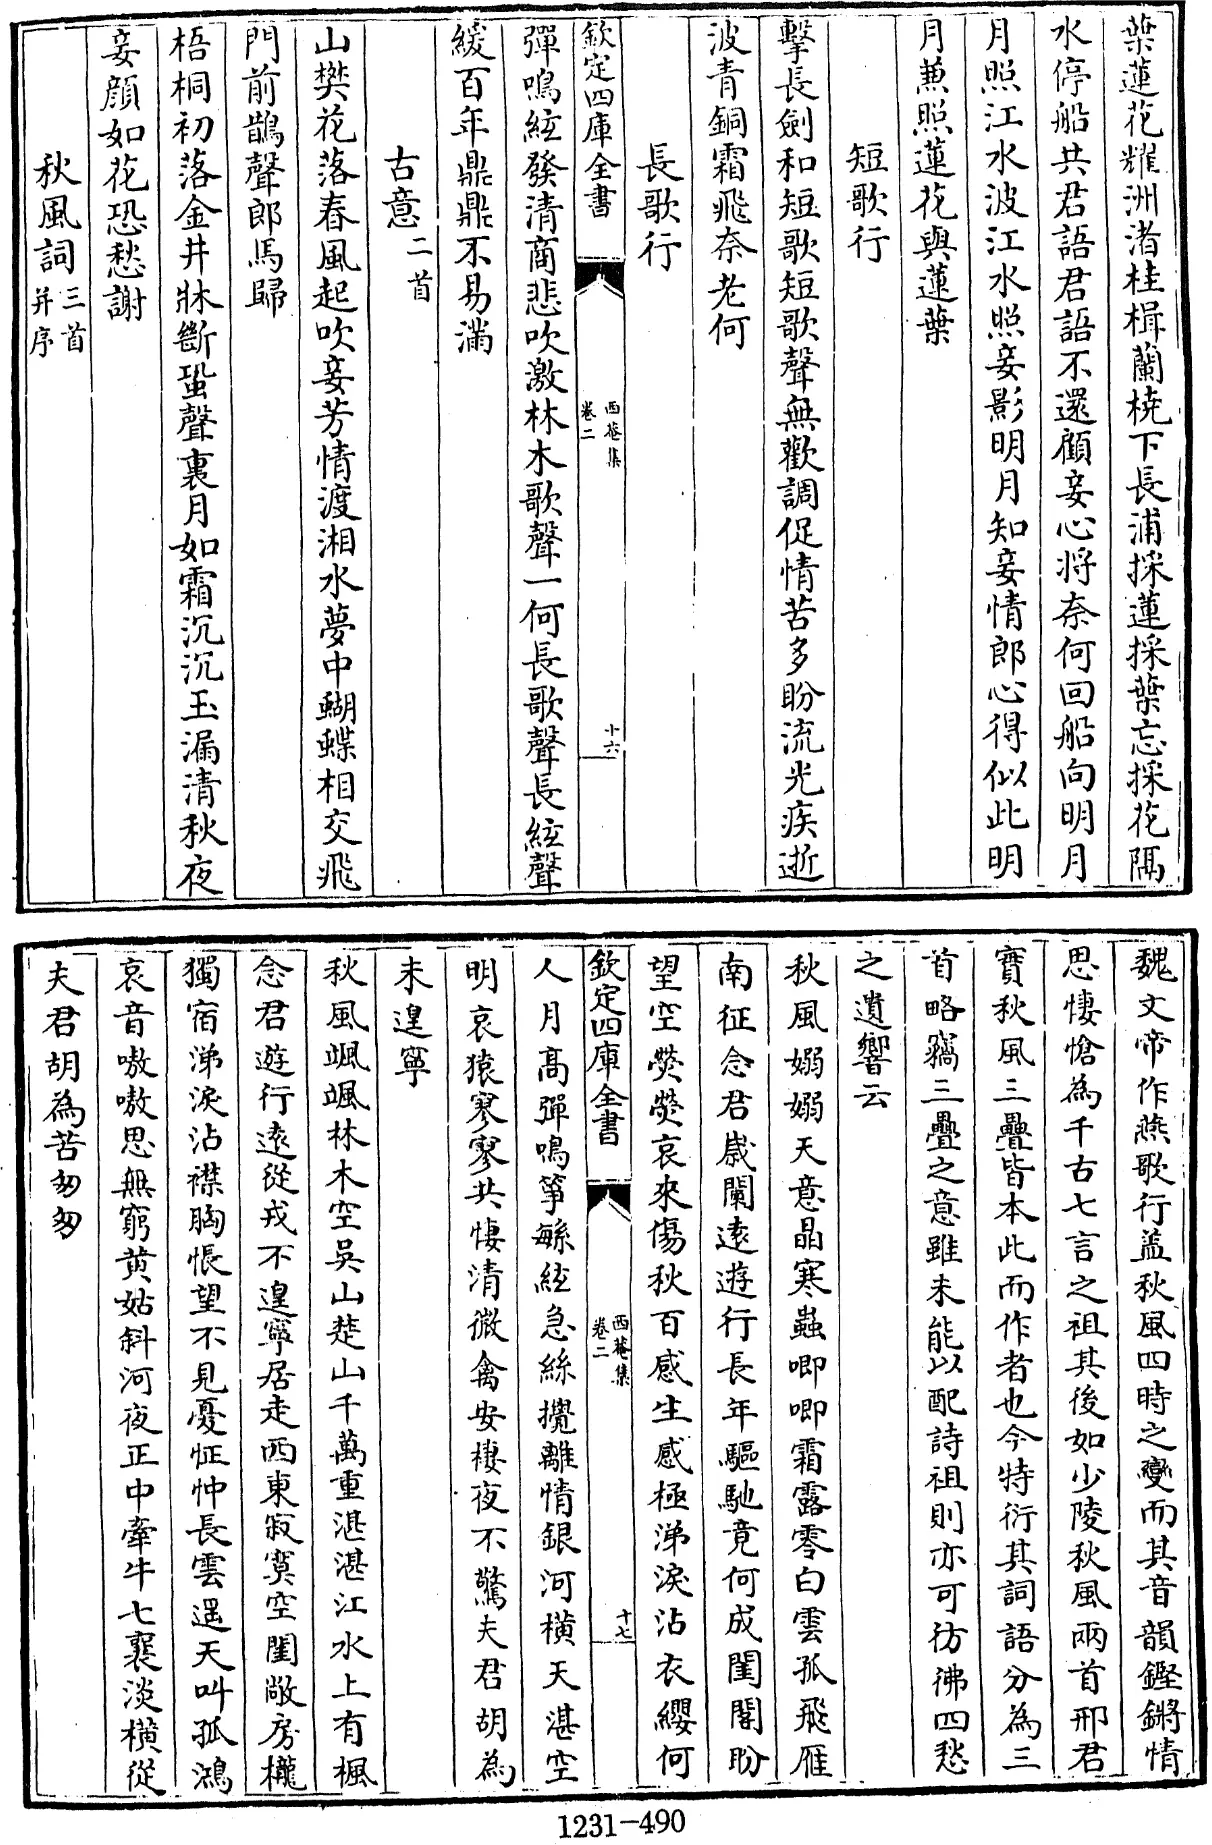 葉蓮花耀洲渚桂楫蘭橈下長浦採蓮採葉忘採花隔
水停船共君語君語不還顧妾心將奈何回船向明月
月照江水波江水照妾影明月知妾情郎心得似此明
月兼照蓮花與蓮葉
短歌行
擊長劍和短歌短歌聲無歡調促情苦多盼流光疾逝
波青銅霜飛奈老何
長歌行
欽定四庫全書
西菴集
卷二
十六
彈鳴絃發清商悲吹激林木歌聲一何長歌聲長絃聲
緩百年鼎鼎不易滿
古意二首
山樊花落春風起吹妾芳情渡湘水夢中蝴蝶相交飛
門前鵲聲郎馬歸
梧桐初落金井牀斷蛩聲裏月如霜沉沉玉漏清秋夜
妾顏如花恐愁謝
秋風詞三首并序
魏文帝作燕歌行蓋秋風四時之變而其音韻鏗鏘情
思悽愴為千古七言之祖其後如少陵秋風兩首邢君
寶秋風三疊皆本此而作者也今特衍其詞語分為三
首略竊三疊之意雖未能以配詩祖則亦可彷彿四愁
之遺響云
秋風嫋嫋天意晶寒蟲唧唧霜露零白雲孤飛雁
南征念君歲闌遠遊行長年驅馳竟何成閨閤盼
望空熒熒哀來傷秋百感生感極涕淚沾衣纓何
欽定四庫全書
西菴集
卷二
十七
人月高彈鳴箏緐絃急絲攪離情銀河橫天湛空
明哀猿寥寥共悽清微禽安棲夜不驚夫君胡為
未遑寧
秋風颯颯林木空吳山楚山千萬重湛湛江水上有楓
念君遊行遠從戎不遑寧居走西東寂寞空閨敞房櫳
獨宿涕淚沾襟胸悵望不見憂怔忡長雲遥天叫孤鴻
哀音嗷嗷思無窮黄姑斜河夜正中牽牛七襄淡橫從
夫君胡為苦匆匆
1231-490